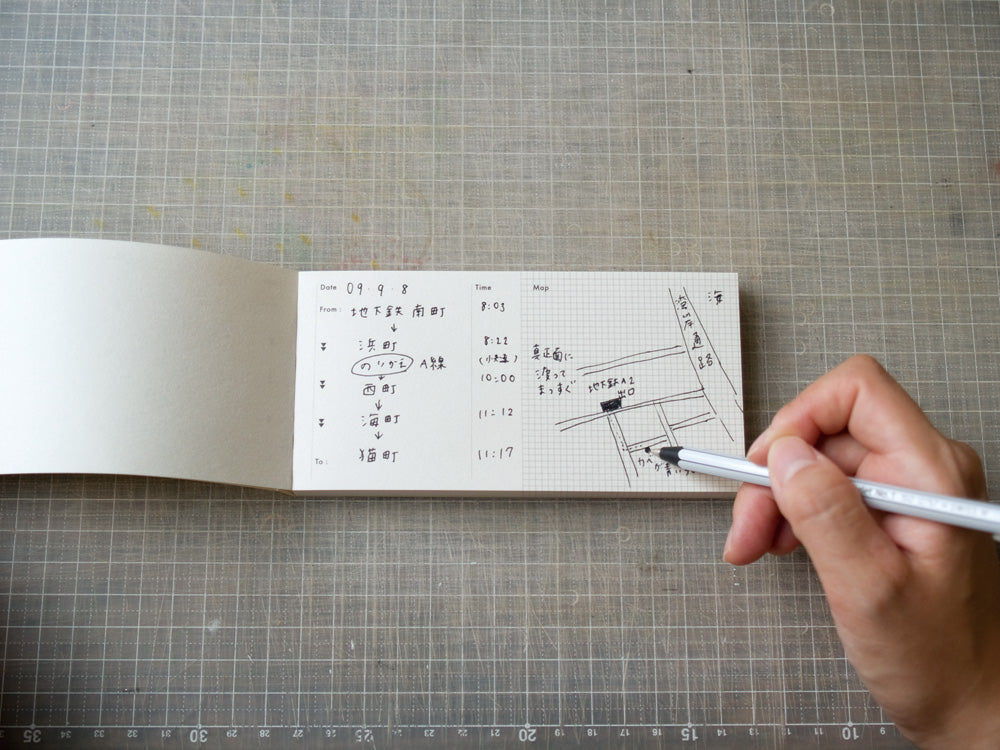 Date 09・9・8
Time
Map
From : 地下鉄 南町 8:03
↓
浜町 8:22
のりかえ A線 (小走り)
西町 10:00
↓
海町 11:12
↓
To : 猫町 11:17
海
通
路
真正面に
渡って
まっすぐ
地下鉄A2
出口
かべが青い
35 34 33 32 31 30 29 28 27 26 25 24 23 22 21 20 19 18 17 16 15 14 13 12 11 10 9